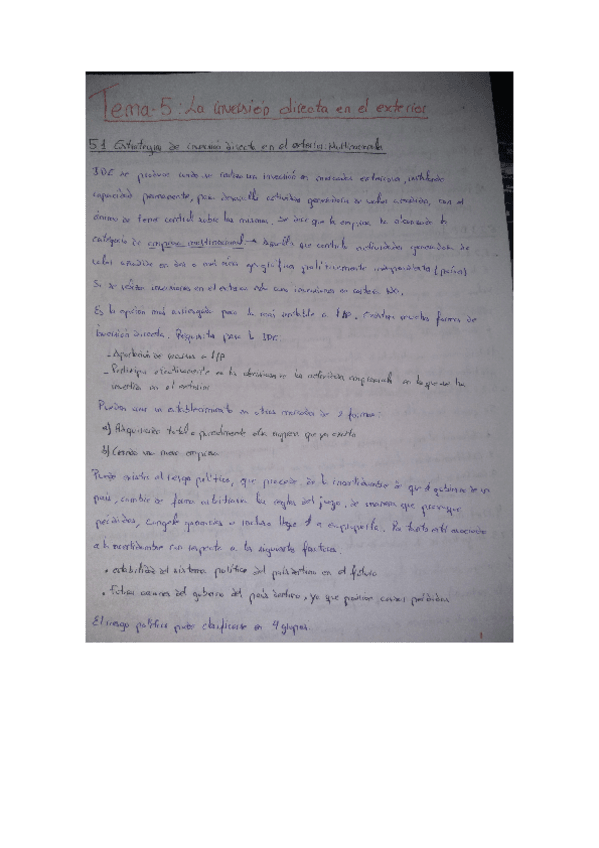 Tema-5: La inversión directa en el exterior
5.1 Estrategias de inversión directa en el exterior: Multinacionales
IDE se produce cuando se realiza una inversión en mercados exteriores, instalando
capacidad permanente, para desarrollar actividades generadoras de valor añadido, con el
ánimo de tener control sobre las mismas. Se dice que la empresa ha alcanzado la
categoría de empresa multinacional → aquella que controla actividades generadoras de
valor añadido en dos o más áreas geográficas políticamente independientes (países)
Si se realizan inversiones en el exterior
Es la opción más arriesgada pero la más rentable a L/P. Existen muchas formas de
inversión directa. Requisitos para la IDE:
- Aportación de recursos a L/P
- Participar efectivamente en la de las actividades empresariales en las que se ha
invertido en el exterior
Pueden crear un establecimiento en otros mercados de 2 formas:
a) Adquisición total o parcialmente de empresa que ya existía
b) Creando una nueva empresa
Puede existir el riesgo político, que procede de la incertidumbre de que el gobierno de un
país, cambie de forma arbitraria las reglas del juego, de manera que provoque
pérdidas, congele ganancias o incluso llegue a expropiarla. Por tanto está asociado
a la incertidumbre con respecto a los siguientes factores:
• estabilidad del sistema político del país destino en el futuro
• Futuras acciones del gobierno del país destino, ya que podrían causar pérdidas
El riesgo político puede clasificarse en 4 grupos.
1